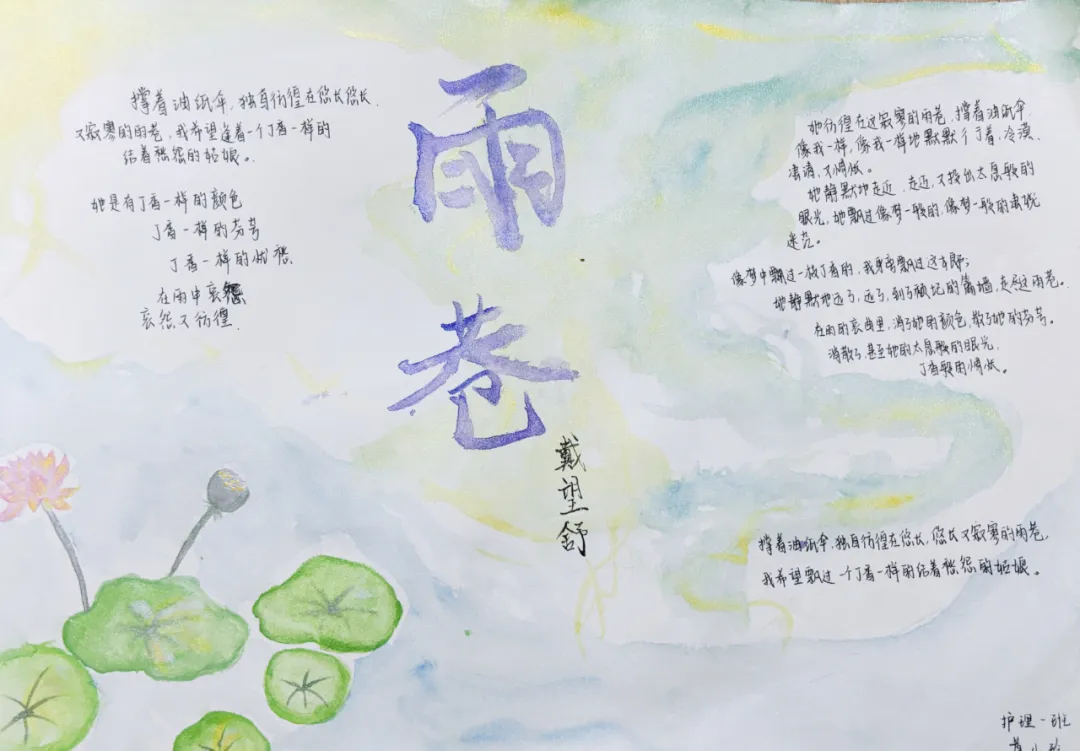 雨巷
戴望舒
撑着油纸伞，独自彷徨在悠长悠长，
又寂寥的雨巷，我希望逢着一个丁香一样的
结着愁怨的姑娘。
她是有丁香一样的颜色
丁香一样的芬芳
丁香一样的忧愁，
在雨中哀怨
哀怨又彷徨，
她彷徨在这寂寥的雨巷，撑着油纸伞
像我一样，像我一样地默默彳亍着，冷漠、
凄清，又惆怅。
她静默地走近，走近，又投出太息般的
眼光，她飘过像梦一般的，像梦一般的凄婉
迷茫。
像梦中飘过一枝丁香的，我身旁飘过这女郎；
她静默地远了，远了，到了颓圮的篱墙，走尽这雨巷。
在雨的哀曲里，消了她的颜色，散了她的芬芳。
消散了，甚至她的太息般的眼光，
丁香般的惆怅。
撑着油纸伞，独自彷徨在悠长，悠长又寂寥的雨巷，
我希望飘过一个丁香一样的结着愁怨的姑娘。
护理一班